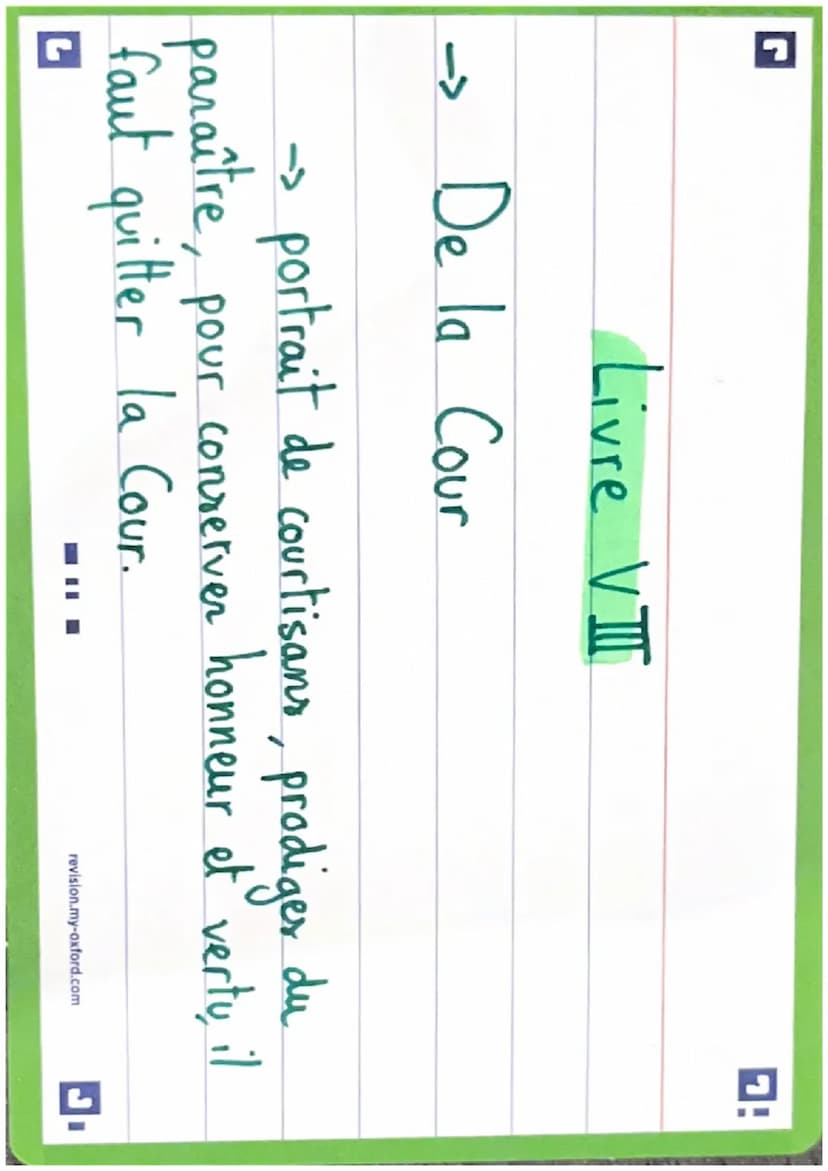 Livre VIII
→ De la Cour
→ portrait de courtisans, prodiges du
paraître, pour conserver honneur et vertu, il
faut quitter la Cour.
revision.my-oxford.com